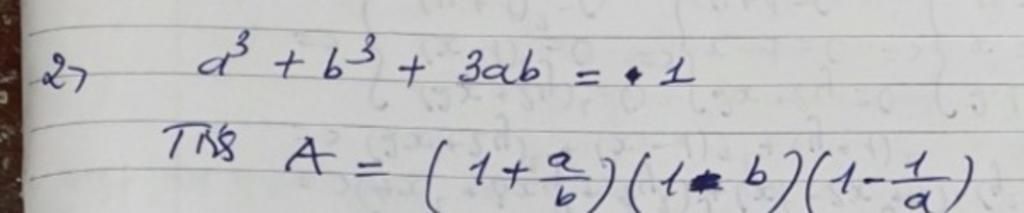 2, a³ + b³ + 3ab = 1
A = (1 + a/b)(1 - b)(1 - 1/a)